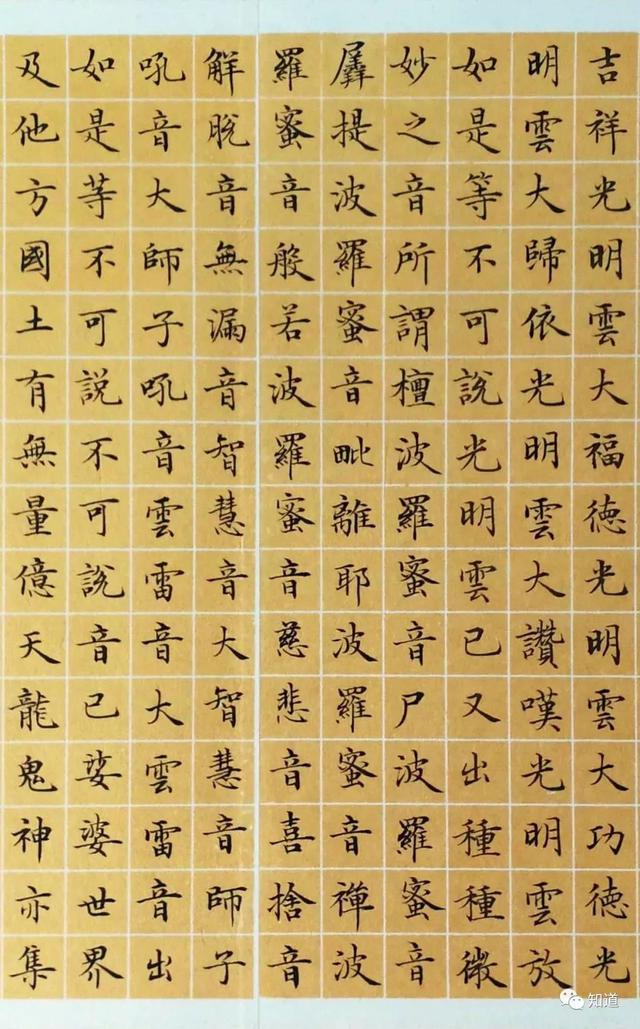 吉祥光明雲大福德光明雲大功德光
明雲大歸依光明雲大讚嘆光明雲放
如是等不可說光明雲已又出種種微
妙之音所謂檀波羅蜜音尸波羅蜜音
羼提波羅蜜音毗離耶波羅蜜音禪波
羅蜜音般若波羅蜜音慈悲音喜捨音
解脫音無漏音智慧音大智慧音師子
吼音大師子吼音雲雷音大雲雷音出
如是等不可說不可說音已娑婆世界
及他方國土有無量億天龍鬼神亦集
知道